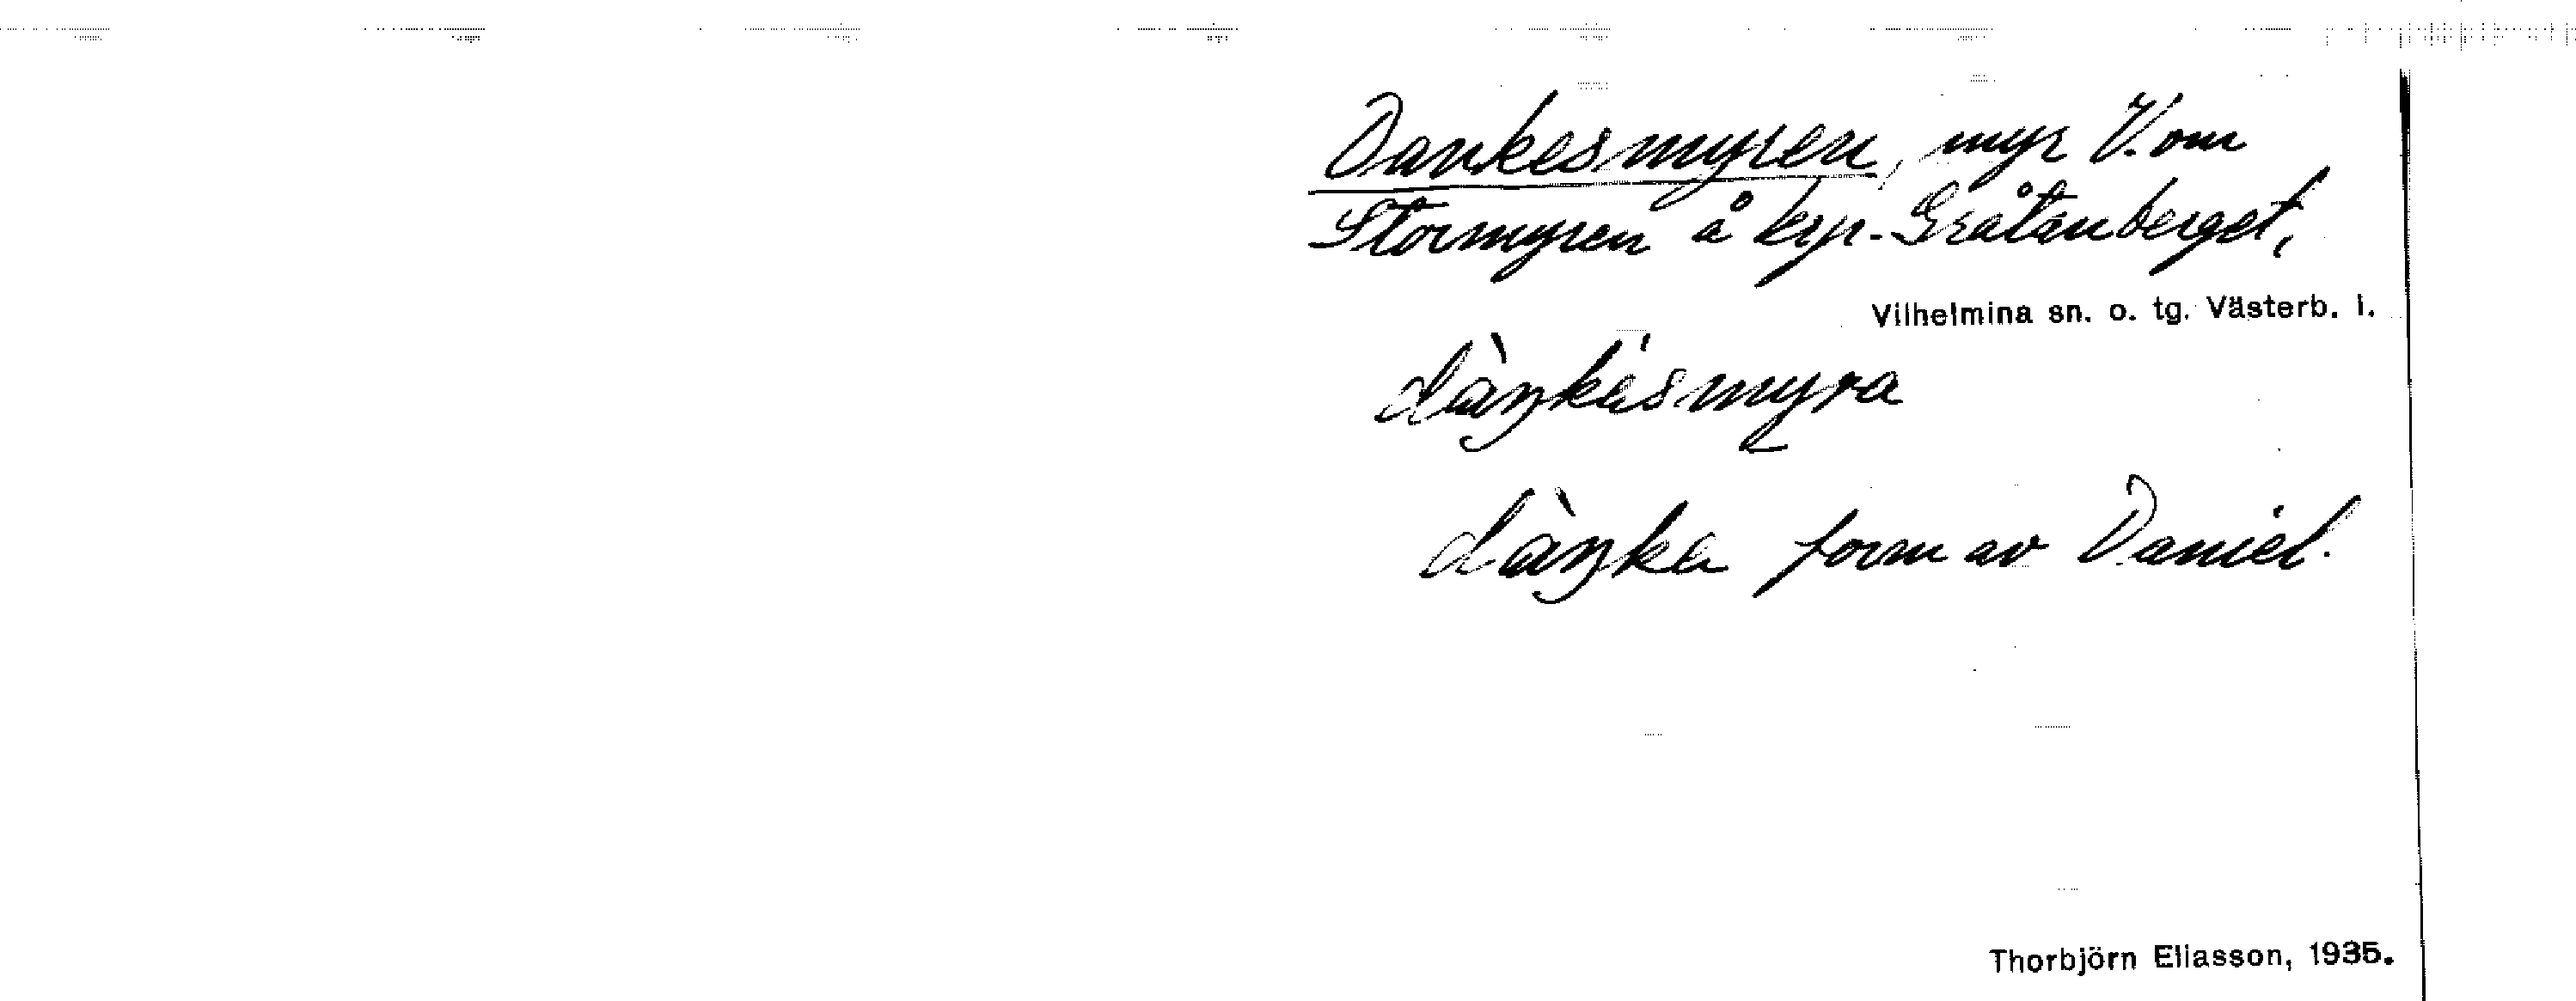 Dankesmyren, myr V. om
Stormyren å krp. Gråtanberget,
Vilhelmina sn. o. tg. Västerb. l.
dàŋkásmyra
dàŋka form av Daniel.
Thorbjörn Eliasson, 1935.